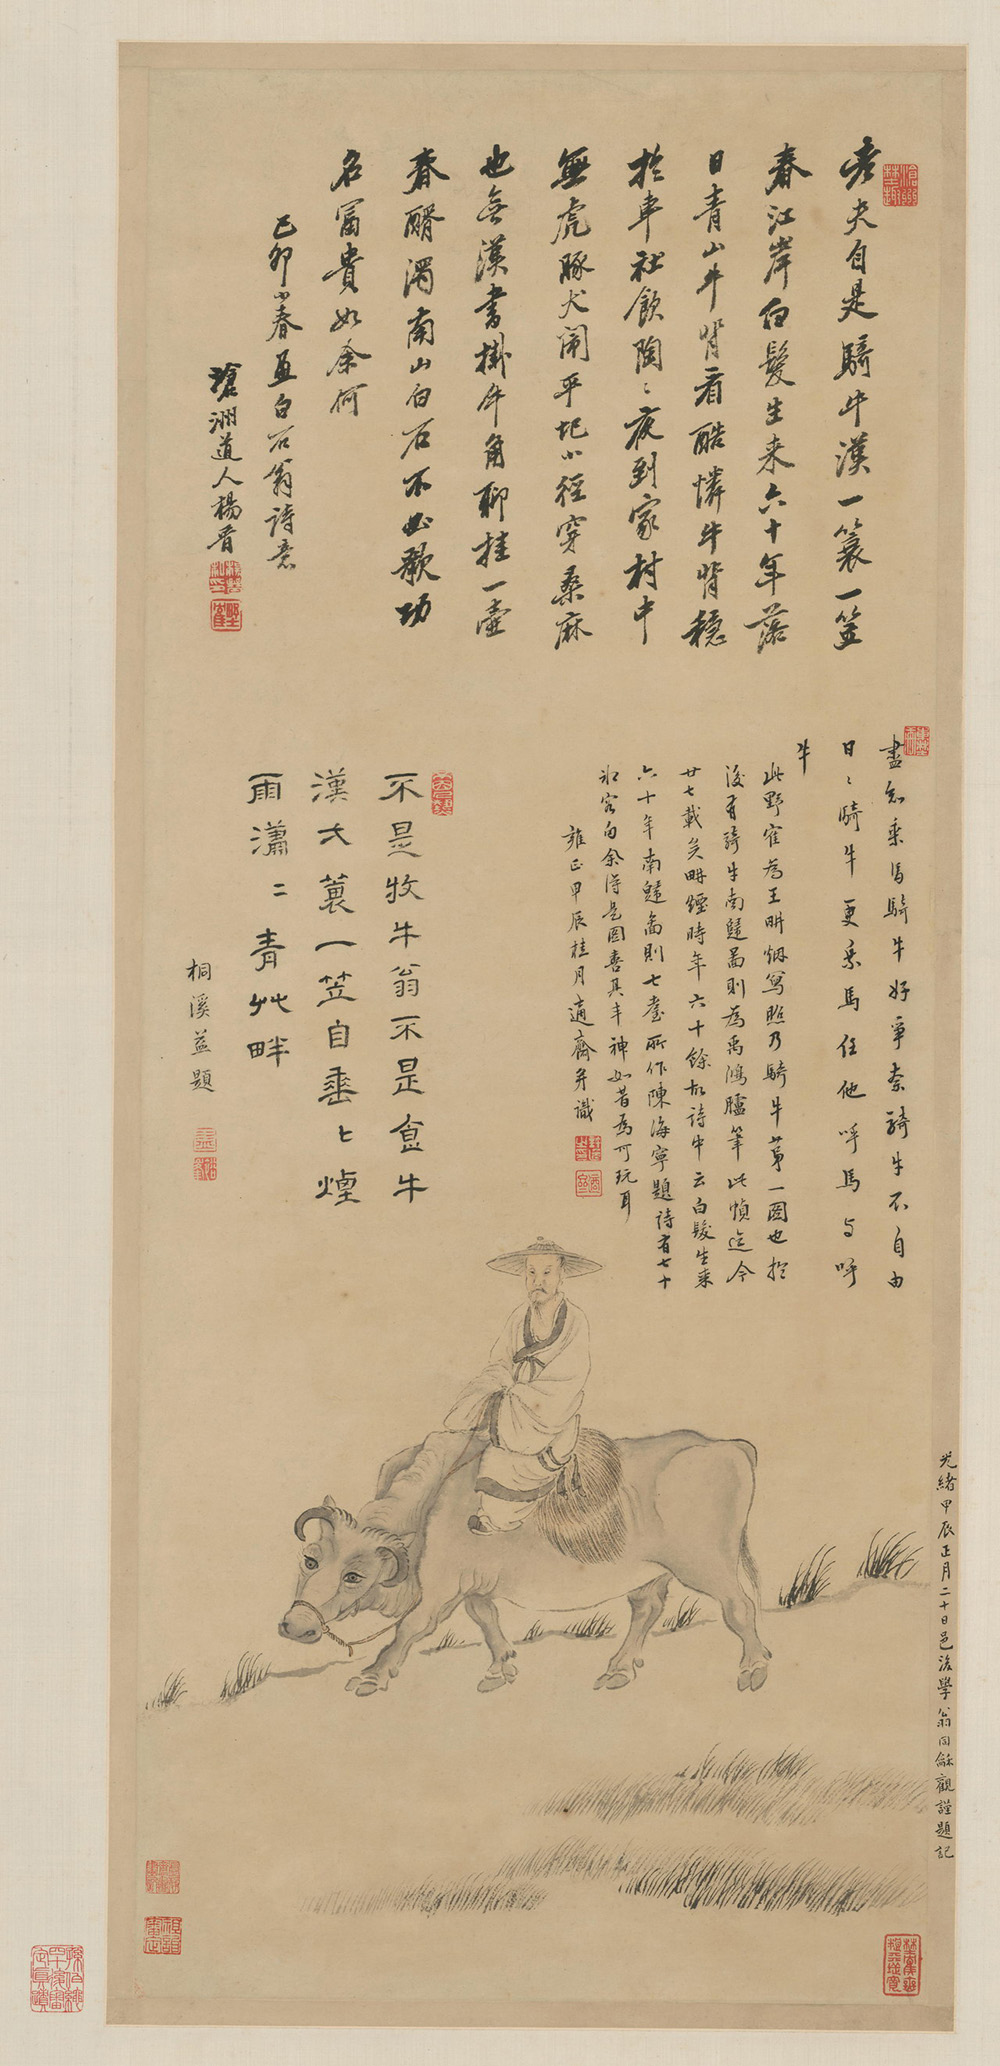 老夫自是騎牛漢一蓑一笠
春江岸白髮生来六十年落
日青山牛背看酷憐牛背穏
於車社飲陶〻夜到家村中
無虎豚犬閙平圯小徑穿桑麻
也無漢書掛牛角聊挂一壺
春醑濁南山白石不必歌功
名富貴如余何
己卯小春畫白石翁詩意
滄洲道人楊晉
盡知乗馬騎牛好爭奈騎牛不自由
日〻騎牛更乗馬任他呼馬与呼
牛
此野隺為王畊烟寫照乃騎牛苐一圖也於
後有騎牛南歸啚則為禹鴻臚筆此幀迄今
廿七載矣畊煙時年六十餘故詩中云白髮生来
六十年南歸啚則七耋所作陳海寧題詩有七十
客句余得是圖喜其丰神如昔為可玩耳
雍正甲辰桂月適齋并識
不是牧牛翁不是飯牛
漢一蓑一笠自垂〻煙
雨瀟〻青艸畔
桐溪益題
光緒甲辰正月二十日邑後學翁同龢觀謹題記